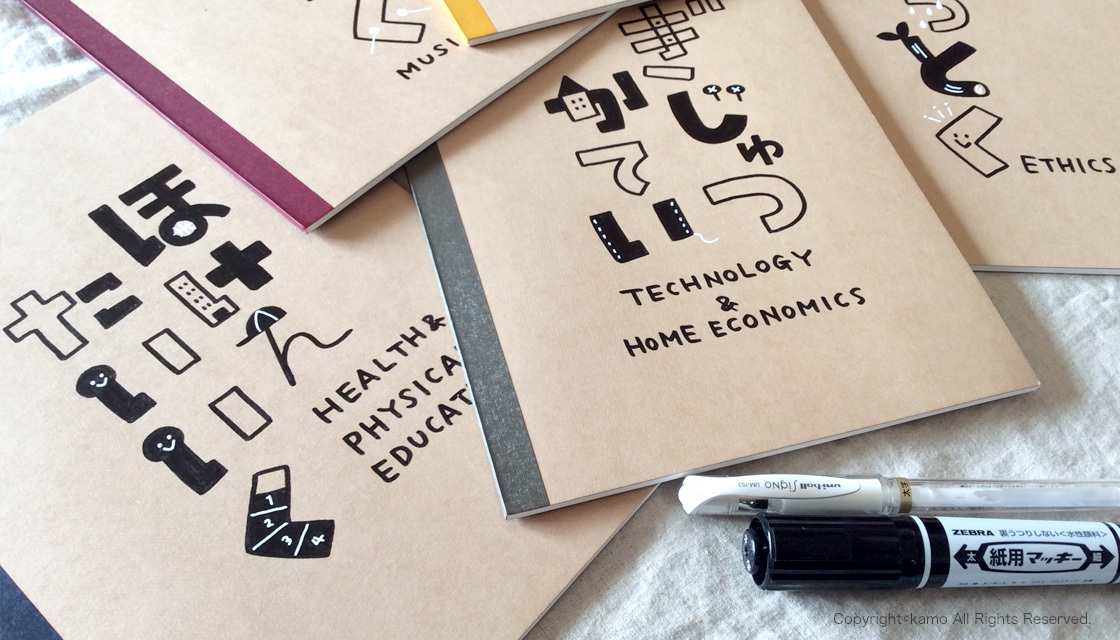 く
MUSI
ほけん
たいいく
1
2
3
4
HEALTH &
PHYSICA
EDUCAT
ぎじゅつ
かてい
TECHNOLOGY
&
HOME ECONOMICS
とく
ETHICS
uni-ball Signo UM-153
太字
ZEBRA 裏うつりしない<水性顔料>
太 紙用マッキー 細
Copyright©kamo All Rights Reserved.